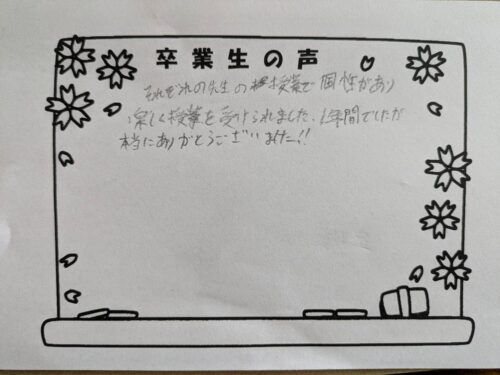 卒業生の声
それぞれの先生の授業で個性があり
楽しく授業を受けられました。1年間でしたが
本当にありがとうございました!!